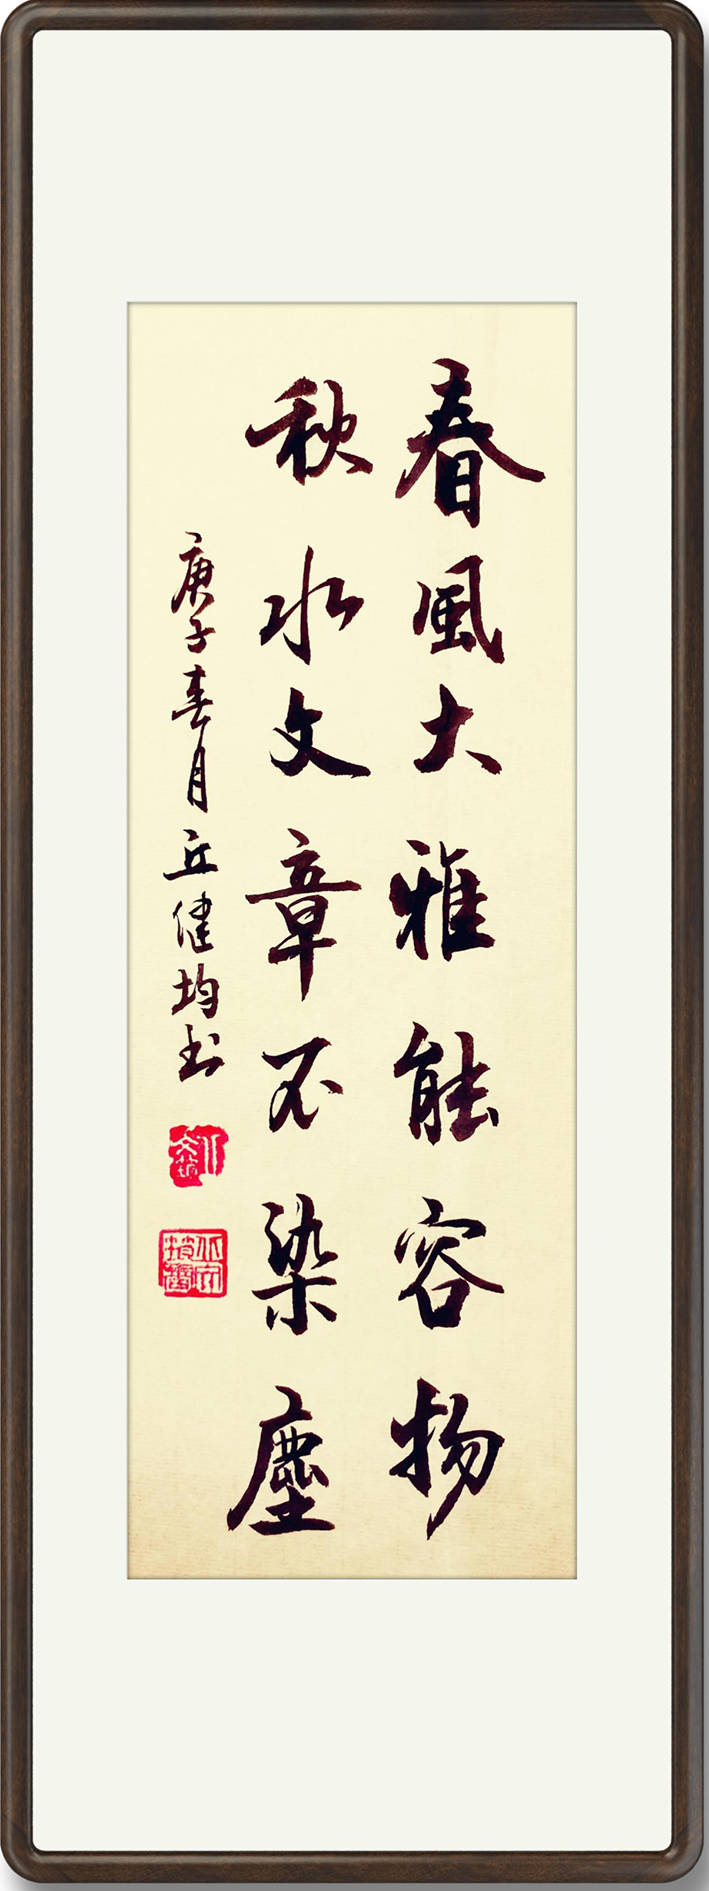 春風大雅能容物
秋水文章不染塵
庚子春月丘健均书